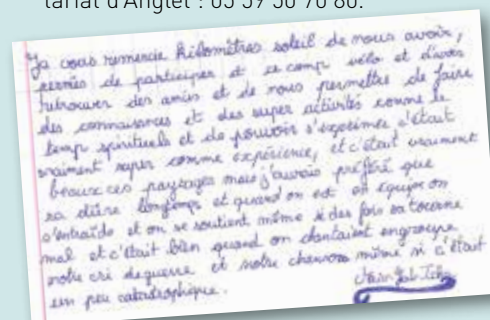 tariat d'Anglet : 05 59 50 70 80.
Ja vous remercie kilomètres soleil de nous avoir,
permis de participer at ce camp vélo et d'avoir
retrouver des amis et de nous permettre de faire
des connaisances et des super activités comme le
temp spirituels et de pouvoir s'exprimer c'était
vraiment super comme expérience, et c'était vraiment
beaux ces paysages mais j'aurais préféré que
sa dure longtemps et quand on est en équipe on
s'entraide et on se soutient même si des fois sa tourne
mal et c'était bien quand on chantaient engroupe
notre cri deguerre et notre chanson même si c'était
un peu catastrophique.